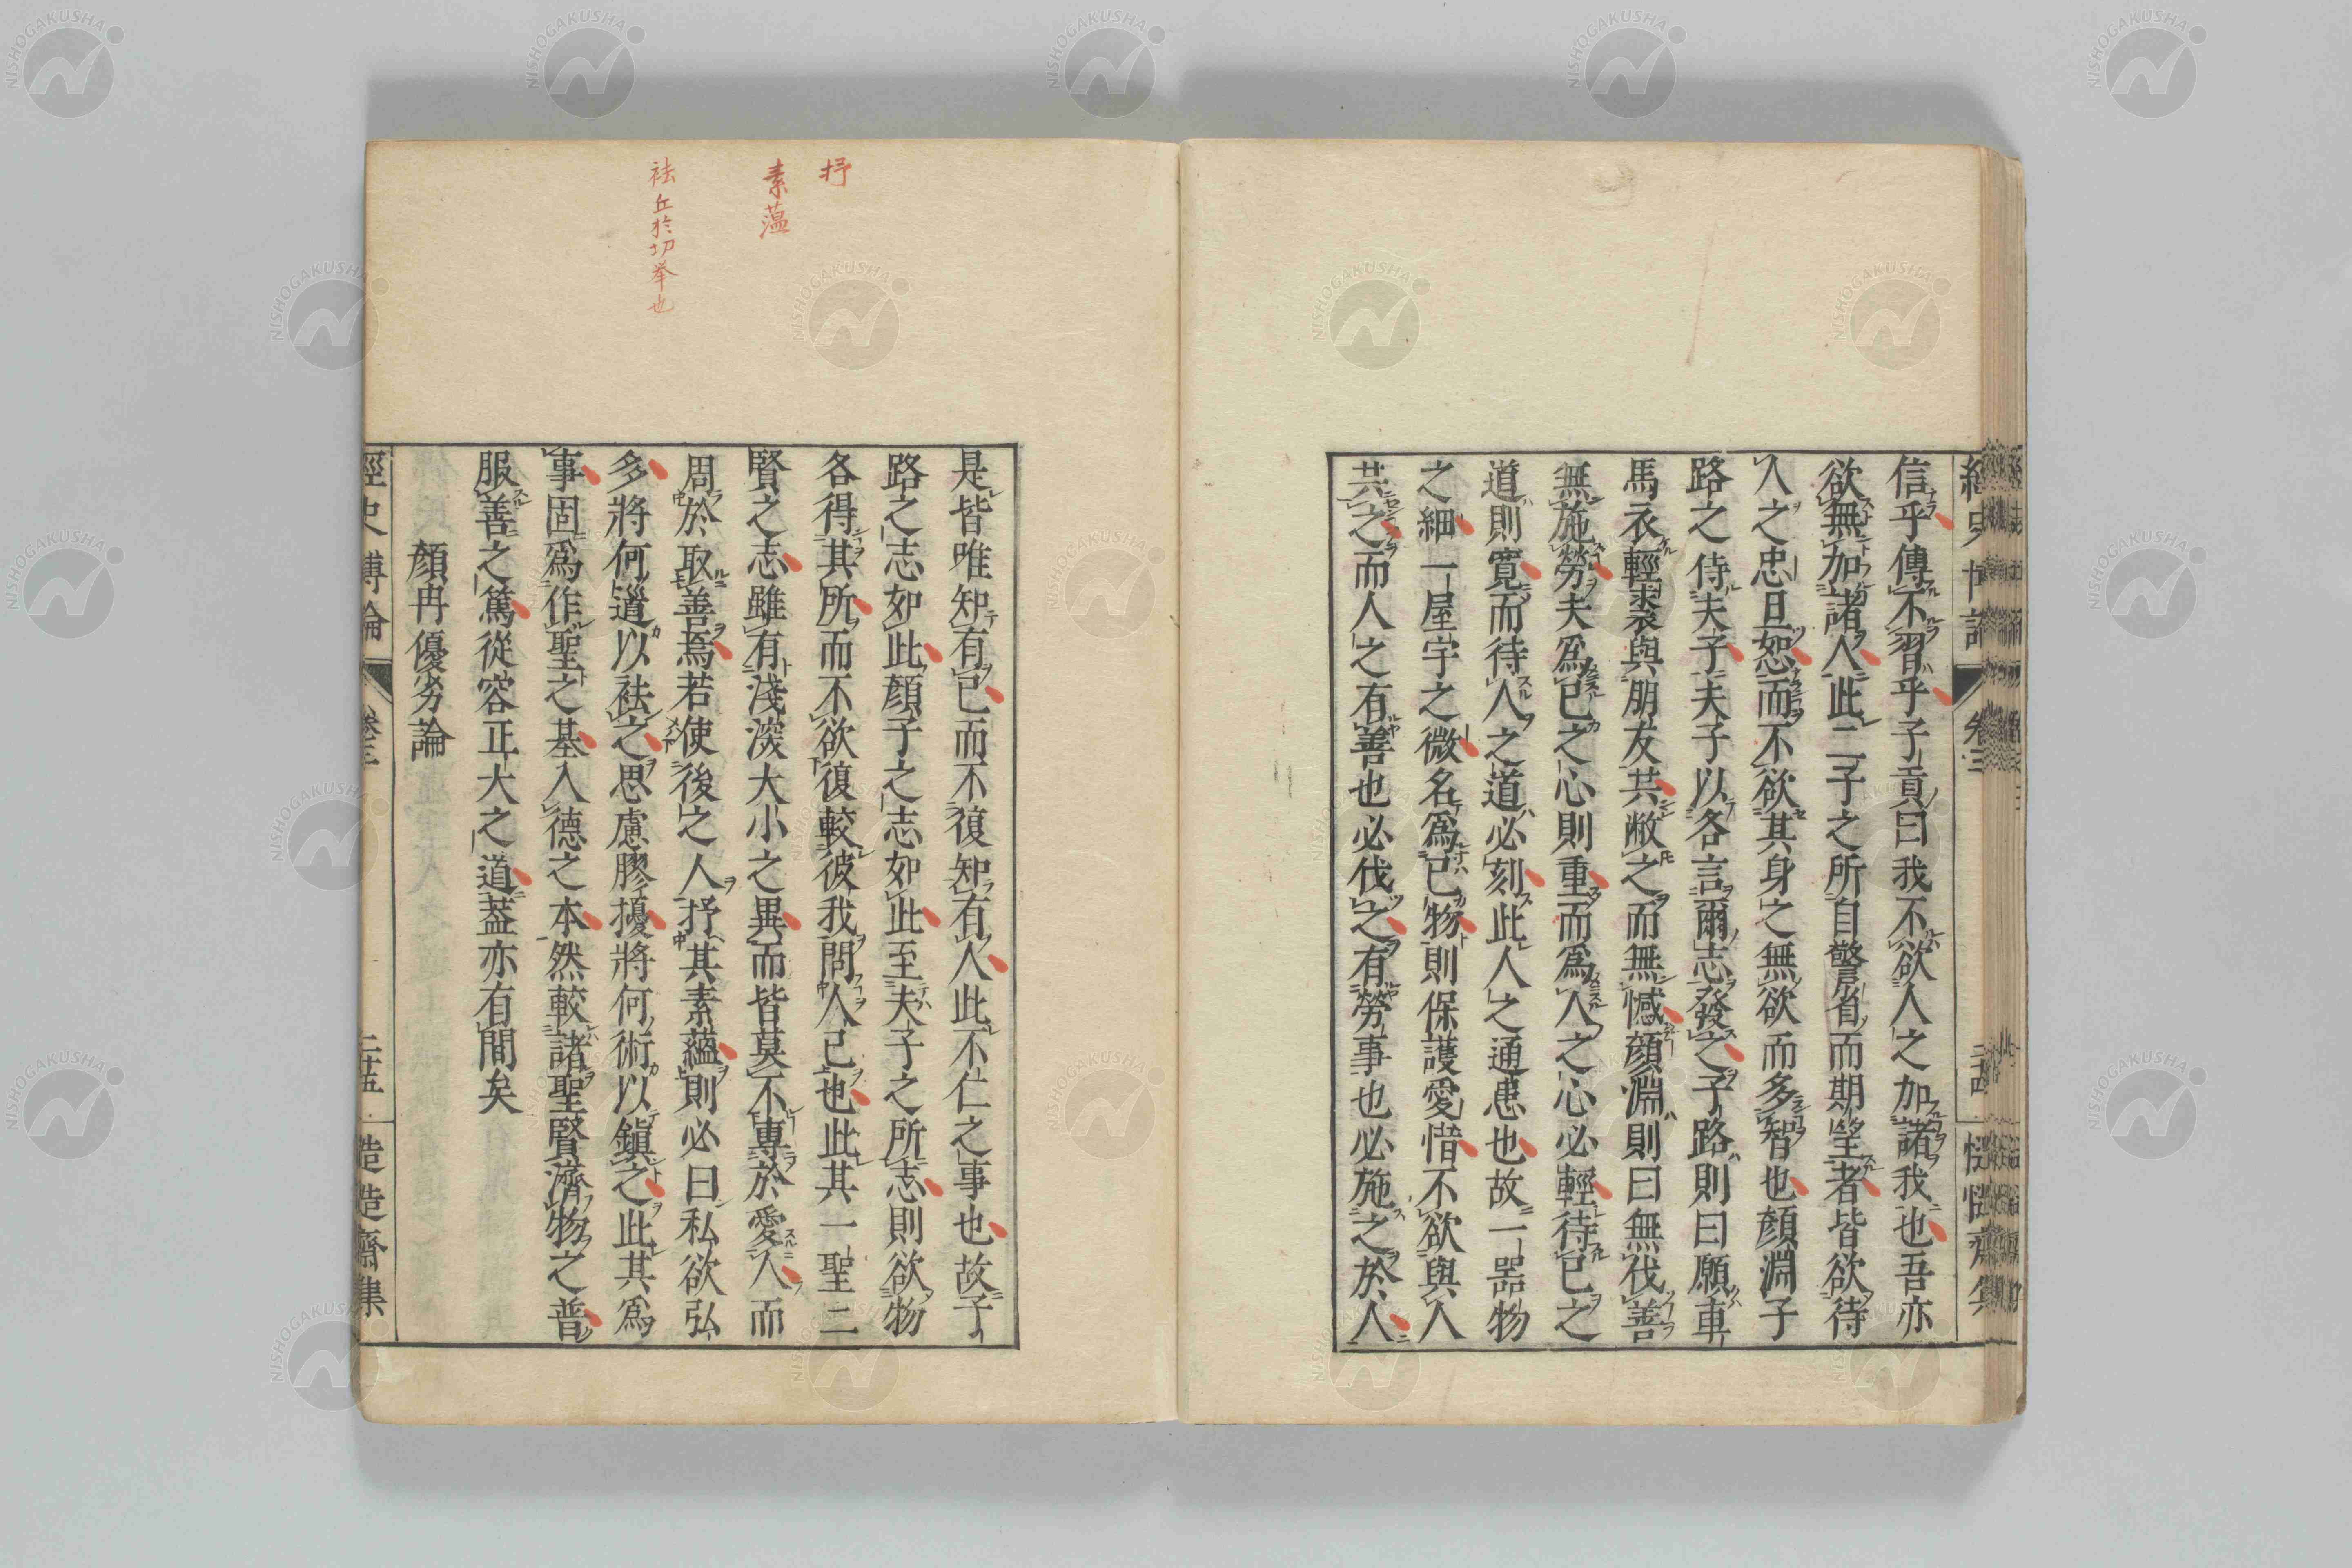 信乎傳不習乎子貢曰我不欲人之加諸我也吾亦
欲無加諸人此二子之所自警省而期望者皆欲待
人之忠且恕而不欲其身之無欲而多智也顏淵子
路之侍夫子夫子以各言爾志發之子路則曰願車
馬衣輕裘與朋友共敝之而無憾顏淵則曰無伐善
無施勞夫爲己之心則重而爲人之心必輕待己之
道則寬而待人之道必刻此人之通患也故一器物
之細一屋宇之微名爲己物則保護愛惜不欲與人
共之而人之有善也必伐之有勞事也必施之於人
是皆唯知有己而不復知有人此不仁之事也故子
路之志如此顏子之志如此至夫子之所志則欲物
各得其所而不欲復較彼我問人己也此其一聖二
賢之志雖有淺深大小之異而皆莫不專於愛人而
周於取善焉若使後之人抒其素蘊則必曰私欲弘
多將何道以祛之思慮膠擾將何術以鎭之此其爲
事固爲作聖之基入德之本然較諸聖賢濟物之普
服善之篤從容正大之道蓋亦有間矣
顏冉優劣論
經史博論
卷三
二十五
慥慥齋集
抒
素薀
祛丘於切挙也
NISHOGAKUSHA